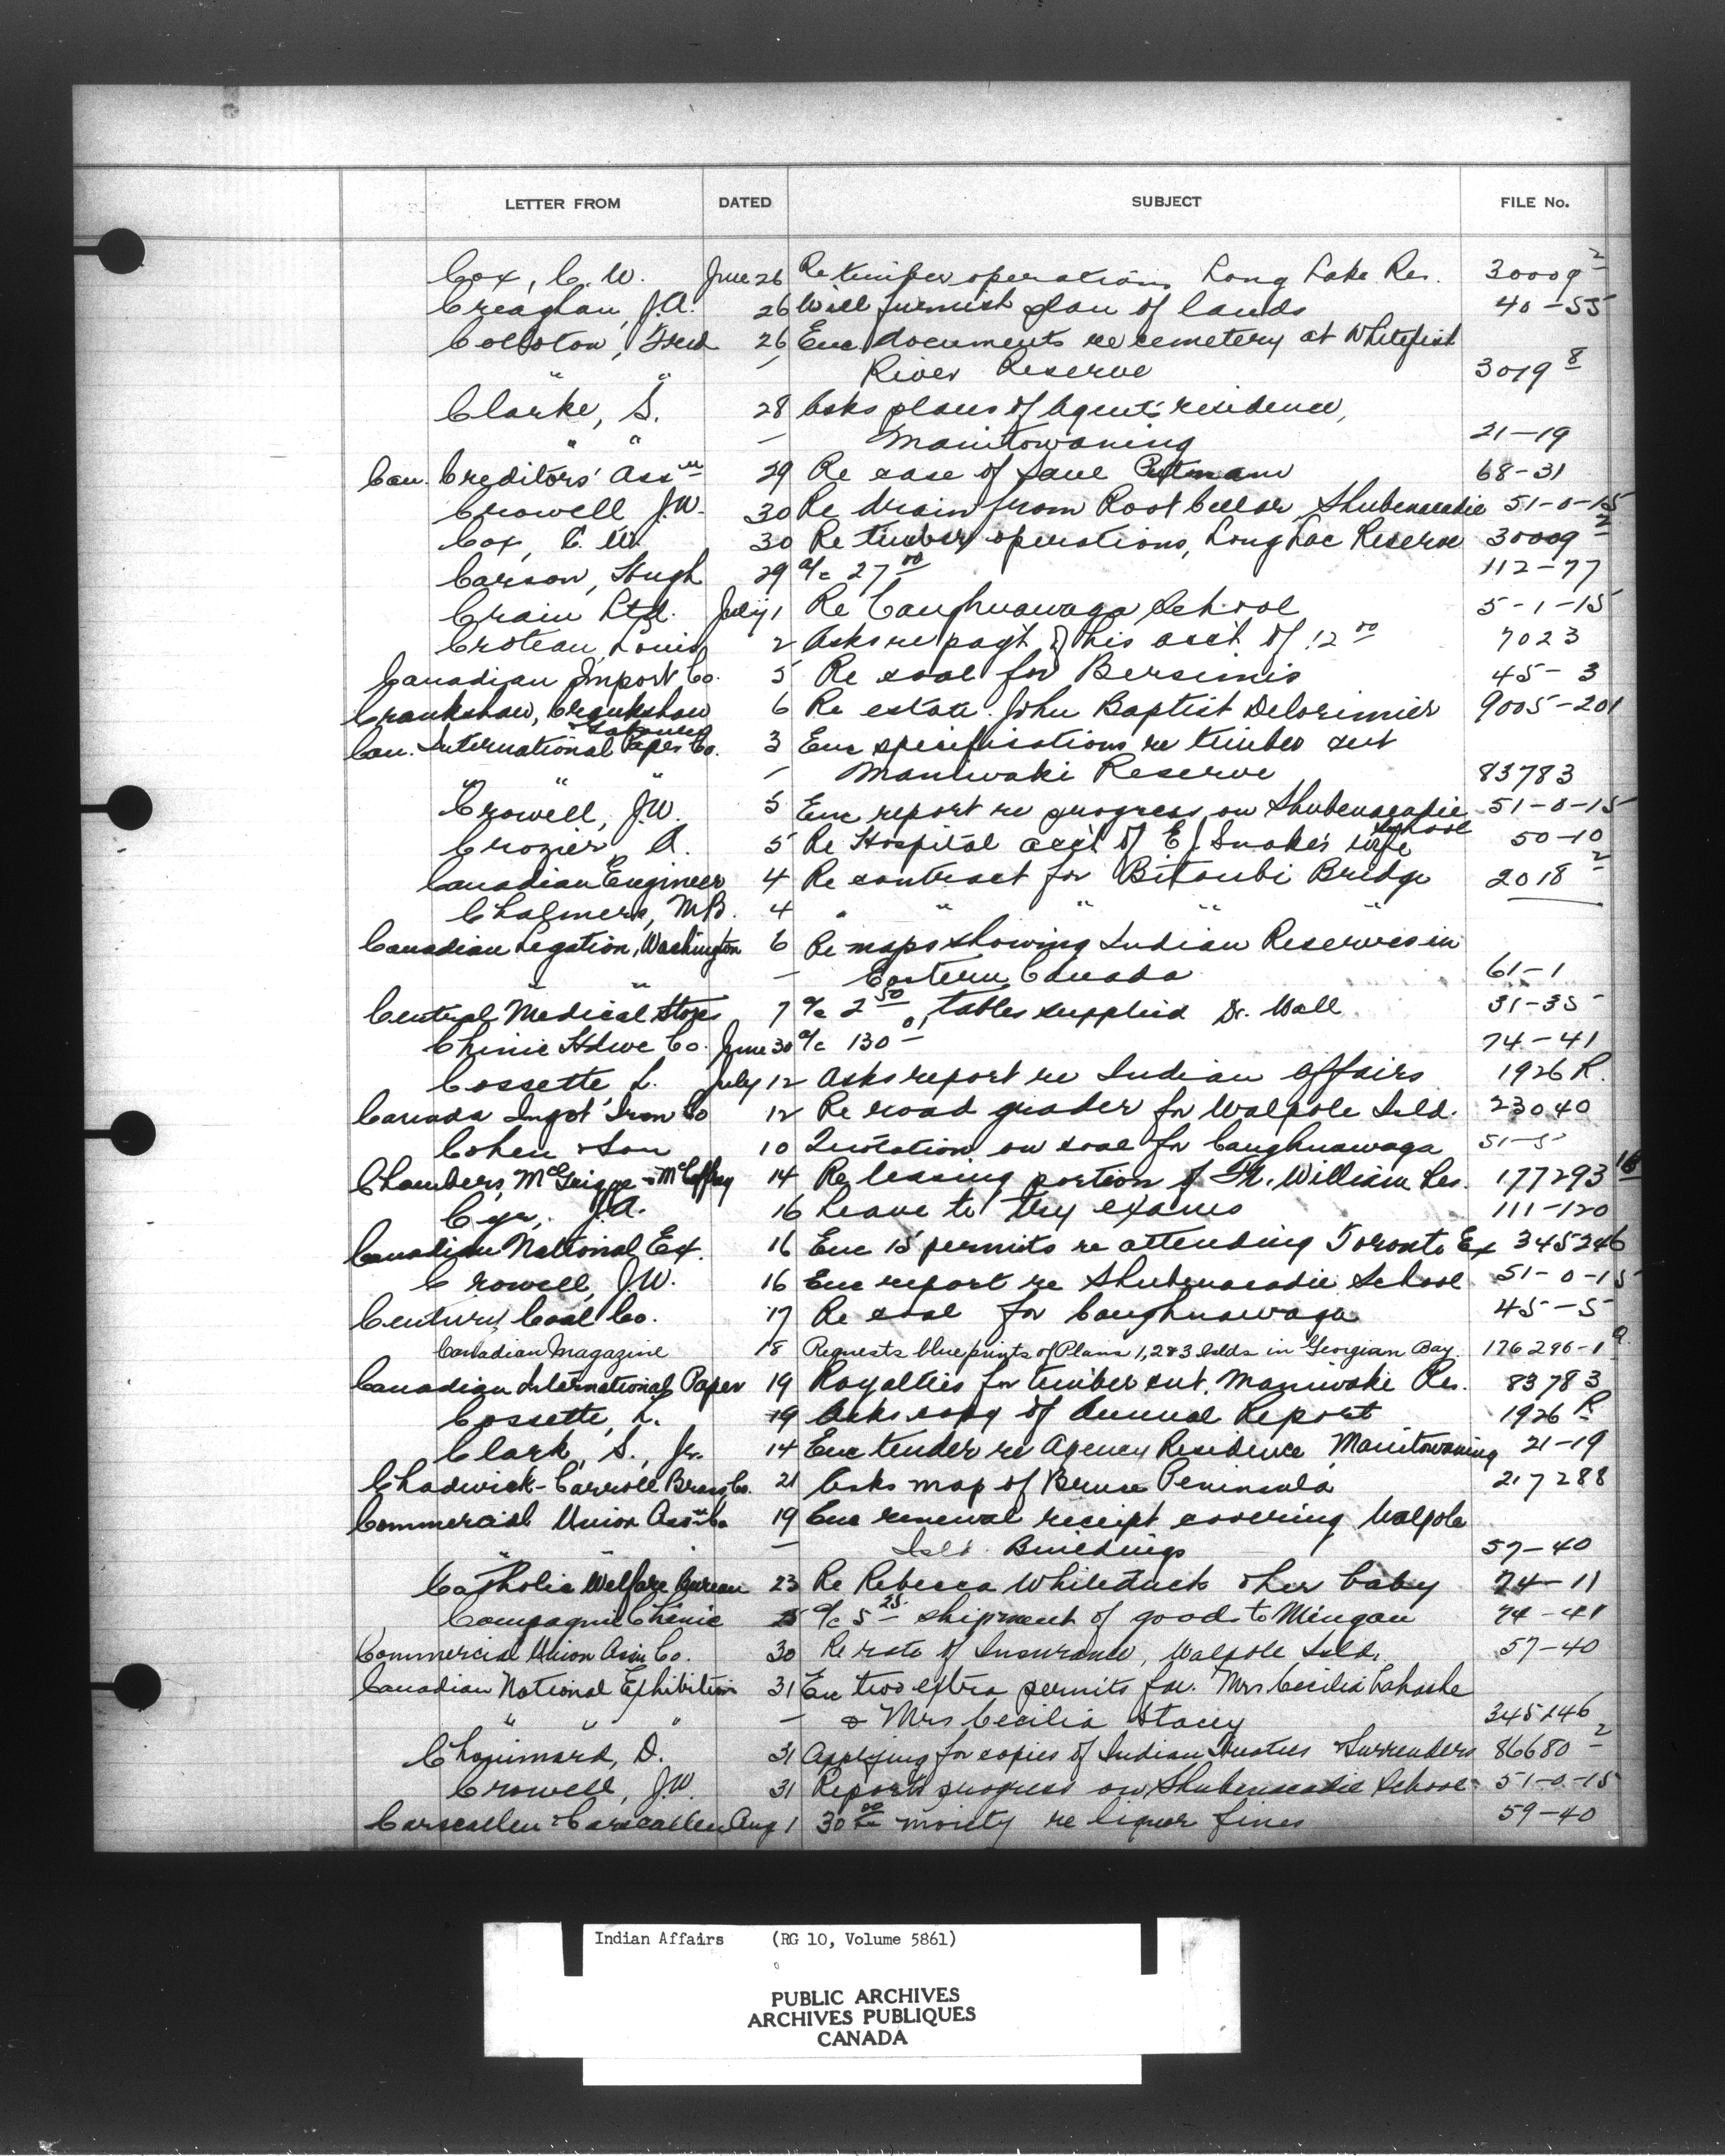 LETTER FROM DATED SUBJECT FILE No.
Cox, C. W. June 26 Re timber operations Long Lake Res. 30009 2
Creaghan, J.A. 26 Will furnish plan of lands 40-55
Fred 26 Enc documents re cemetery at Whitefish
" " - River Reserve 3019 8
Clarke, S. 28 Asks plans of Agent's residence,
" " - Manitowaning 21-19
Can. Creditors' Ass'n 29 Re case of 68-31
Crowell J.W. 30 Re drain from Root Cellar, Shubenacadie 51-0-15
Cox, C. W. 30 Re timber operations, Long Lac Reserve 30009 2
Carson, Hugh 29 a/c 27 00 112-77
Crain Ltd. July 1 Re Caughnawaga School 5-1-15
Croteau, Louis 2 Asks re pay't of his acc't of 12 00 7023
Canadian Import Co. 5 Re coal for Bersimis 45-3
Crankshaw, Crankshaw 6 Re estate John Baptist Delorimier 9005-201
Can. International Paper Co. 3 Enc specifications re timber cut
" " " - Maniwaki Reserve 83783
Crowell, J.W. 5 Enc report re progress on Shubenacadie School 51-0-15
Crozier, A. 5 Re Hospital acc't of E J. Snake's wife 50-10
Canadian Engineer 4 Re contract for Bitoubi Bridge 2018 2
Chalmers, M.B. 4 " " " " "
Canadian Legation, Washington 6 Re maps showing Indian Reserves in
" " - Eastern Canada 61-1
Central Medical Stores 7 a/c 2 50, tables supplied Dr. Wall 31-35
Chinic Hdwe Co. June 30 a/c 130 01 74-41
Cossette L. July 12 Asks report re Indian Affairs 1926 R.
Canada Ingot Iron Co 12 Re road grader for Walpole Isld. 23040
Cohen & Son 10 Quotation on coal for Caughnawaga 51-5
Chambers, McGuigge & McCaffrey 14 Re leasing portion of Ft. William Res. 177293 16
Cyr, J.A. 16 Leave to try exams 111-120
Canadian National Ex. 16 Enc 15 permits re attending Toronto Ex 345246
Crowell, J.W. 16 Enc report re Shubenacadie School 51-0-15
Century Coal Co. 17 Re coal for Caughnawaga 45-5
Canadian Magazine 18 Requests blueprints of Plans 1,2&3 Islds in Georgian Bay. 176296-1 a
Canadian International Paper 19 Royalties for timber cut, Maniwaki Res. 83783
Cossette, L. 19 Asks copy of Annual Report 1926 R
Clark, S., Jr. 14 Enc tender re Agency Residence Manitowaning 21-19
Chadwick-Carroll Brass Co. 21 Asks map of Bruce Peninsula 217288
Commercial Union Ass'n Co 19 Enc renewal receipt covering Walpole
" " - Isld. Buildings 57-40
Catholic Welfare Bureau 23 Re Rebecca Whiteduck & her baby 74-11
Compagnie Chinic 25 a/c 5 25 shipment of goods to Mingan 74-41
Commercial Union Assn Co. 30 Re rate of Insurance, Walpole Isld. 57-40
Canadian National Exhibition 31 Enc two extra permits for Mrs Cecilia
" " " - & Mrs Cecilia Stacey 345246
Chouinard, D. 31 Applying for copies of Indian Treaties & Surrenders 86680 2
Crowell, J.W. 31 Reports progress on Shubenacadie School 51-0-15
Carscallen & Carscallen Aug 1 30 00 moiety re liquor fines 59-40
Indian Affairs (RG 10, Volume 5861)
PUBLIC ARCHIVES
ARCHIVES PUBLIQUES
CANADA